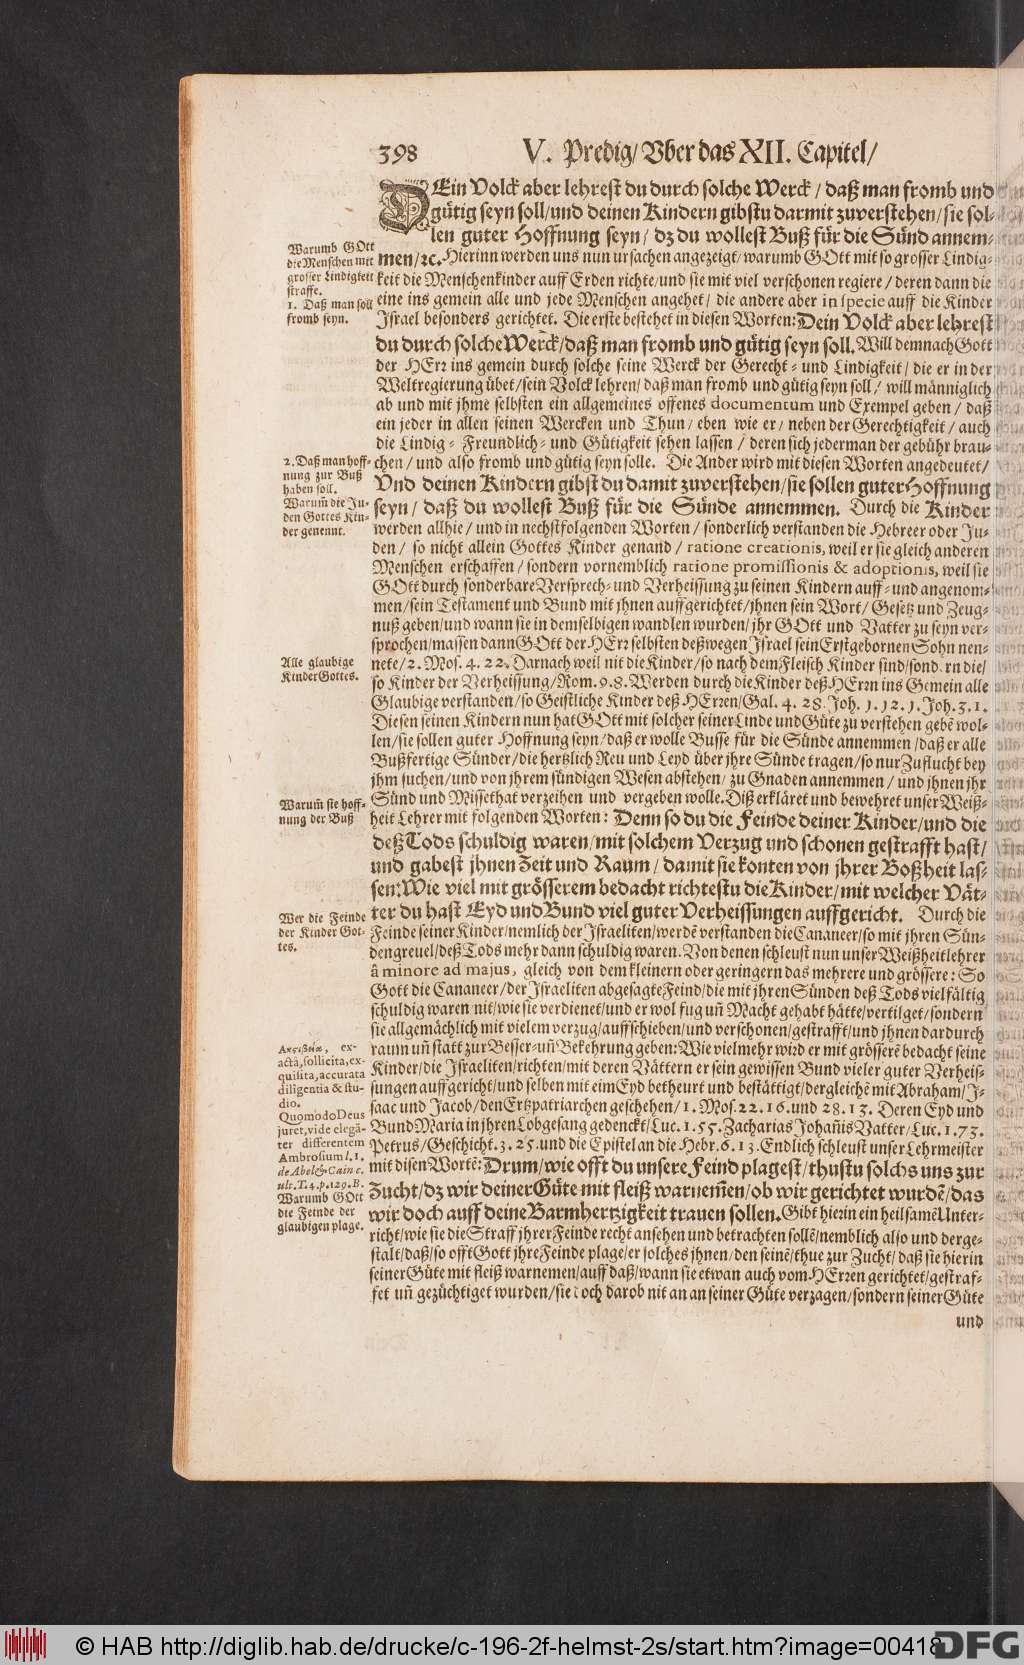 398
V. Predig/ Vber das XII. Capitel/
DEin Volck aber lehrest du durch solche Werck / daß man fromb und
gütig seyn soll/und deinen Kindern gibstu darmit zuverstehen/sie sol-
len guter Hoffnung seyn / dz du wollest Buß für die Sünd annem-
men/ ꝛc. Hierinn werden uns nun ursachen angezeigt/ warumb GOtt mit so grosser Lindig-
keit die Menschenkinder auff Erden richte/und sie mit viel verschonen regiere / deren dann die
eine ins gemein alle und jede Menschen angehet/ die andere aber in specie auff die Kinder
Israel besonders gerichtet. Die erste bestehet in diesen Worten: Dein Volck aber lehrest
du durch solche Werck/daß man fromb und gütig seyn soll. Will demnach Gott
der HErꝛ ins gemein durch solche seine Werck der Gerecht- und Lindigkeit/ die er in der
Weltregierung übet/sein Volck lehren/ daß man fromb und gütig seyn soll/ will männiglich
ab und mit jhme selbsten ein allgemeines offenes documentum und Exempel geben / daß
ein jeder in allen seinen Wercken und Thun/ eben wie er/ neben der Gerechtigkeit/ auch
die Lindig- Freundlich- und Gütigkeit sehen lassen / deren sich jederman der gebühr brau-
chen / und also fromb und gütig seyn solle. Die Ander wird mit diesen Worten angedeutet/
Vnd deinen Kindern gibst du damit zuverstehen/sie sollen guter Hoffnung
seyn / daß du wollest Buß für die Sünde annemmen. Durch die Kinder
werden allhie / und in nechstfolgenden Worten / sonderlich verstanden die Hebreer oder Ju-
den / so nicht allein Gottes Kinder genand / ratione creationis, weil er sie gleich anderen
Menschen erschaffen / sondern vornemblich ratione promissionis & adoptionis, weil sie
GOtt durch sonderbare Versprech- und Verheissung zu seinen Kindern auff- und angenom-
men/sein Testament und Bund mit jhnen auffgerichtet/jhnen sein Wort/ Gesetz und Zeug-
nuß geben/und wann sie in demselbigen wandlen wurden/ jhr GOtt und Vatter zu seyn ver-
sprochen/massen dann GOtt der HErꝛ selbsten deßwegen Israel sein Erstgebornen Sohn nen-
nete/ 2. Mos. 4. 22. Darnach weil nit die Kinder/so nach dem Fleisch Kinder sind/sondern die/
so Kinder der Verheissung/Rom. 9. 8. Werden durch die Kinder deß HErrn ins Gemein alle
Glaubige verstanden/so Geistliche Kinder deß HErren/Gal. 4. 28. Joh. 1. 12. 1. Joh. 3. 1.
Diesen seinen Kindern nun hat GOtt mit solcher seiner Linde und Güte zu verstehen gebē wol-
len/sie sollen guter Hoffnung seyn/daß er wolle Busse für die Sünde annemmen /daß er alle
Bußfertige Sünder/die hertzlich Reu und Leyd über jhre Sünde tragen/so nur Zuflucht bey
jhm suchen/und von jhrem sündigen Wesen abstehen/ zu Gnaden annemmen / und jhnen jhr
Sünd und Missethat verzeihen und vergeben wolle. Diß erkläret und bewehret unser Weiß-
heit Lehrer mit folgenden Worten: Denn so du die Feinde deiner Kinder/und die
deß Tods schuldig waren/mit solchem Verzug und schonen gestrafft hast/
und gabest jhnen Zeit und Raum / damit sie konten von jhrer Boßheit las-
sen: Wie viel mit grösserem bedacht richtestu die Kinder/mit welcher Vät-
ter du hast Eyd und Bund viel guter Verheissungen auffgericht. Durch die
Feinde seiner Kinder/nemlich der Israeliten/werdē verstanden die Cananeer/so mit jhren Sün-
dengreuel/deß Tods mehr dann schuldig waren. Von denen schleust nun unser Weißheitlehrer
â minore ad majus, gleich von dem kleinern oder geringern das mehrere und grössere: So
Gott die Cananeer/der Israeliten abgesagte Feind/die mit jhren Sünden deß Tods vielfältig
schuldig waren nit/wie sie verdienet/und er wol fug uñ Macht gehabt hätte/vertilget/sondern
sie allgemächlich mit vielem verzug/auffschieben/und verschonen/gestrafft/und jhnen dardurch
raum uñ statt zur Besser- uñ Bekehrung geben: Wie vielmehr wird er mit grösserē bedacht seine
Kinder/die Israeliten/richten/mit deren Vättern er sein gewissen Bund vieler guter Verheis-
sungen auffgericht/und selben mit eim Eyd betheurt und bestättigt/dergleichē mit Abraham/I-
saac und Jacob/den Ertzpatriarchen geschehen/1. Mos. 22. 16. und 28. 13. Deren Eyd und
Bund Maria in jhren Lobgesang gedenckt/Luc. 1. 55. Zacharias Johañis Vatter/Luc. 1. 73.
Petrus/Geschicht. 3. 25. und die Epistel an die Hebr. 6. 13. Endlich schleust unser Lehrmeister
mit disen Wortē: Drum/wie offt du unsere Feind plagest/thustu solchs uns zur
Zucht/dz wir deiner Güte mit fleiß warnem̄en/ob wir gerichtet wurdē/das
wir doch auff deine Barmhertzigkeit trauen sollen. Gibt hierin ein heilsamē Unter-
richt/wie sie die Straff jhrer Feinde recht ansehen und betrachten sollē/nemblich also und derge-
stalt/daß/so offt Gott jhre Feinde plage/er solches jhnen/den seinē/thue zur Zucht/ daß sie hierin
seiner Güte mit fleiß warnemen/auff daß/wann sie etwan auch vom HErren gerichtet/gestraf-
fet uñ gezüchtiget wurden/sie doch darob nit an an seiner Güte verzagen/sondern seiner Güte
und
Warumb GOtt
die Menschen mit
grosser Lindigkeit
straffe.
1. Daß man soll
fromb seyn.
2. Daß man hoff-
nung zur Buß
haben soll.
Warum̄ die Ju-
den Gottes Kin-
der genennt.
Alle glaubige
Kinder Gottes.
Warum̄ sie hoff-
nung der Buß
Wer die Feinde
der Kinder Got-
tes.
Ακριβεία, ex-
acta, sollicita, ex-
quisita, accurata
diligentia & stu-
dio.
Quomodo Deus
juret, vide elegā-
ter differentem
Ambrosium l. 1.
de Abel & Cain c.
ult. T. 4. p. 129. B.
Warumb GOtt
die Feinde der
glaubigen plage.
© HAB http://diglib.hab.de/drucke/c-196-2f-helmst-2s/start.htm?image=00418
DFG